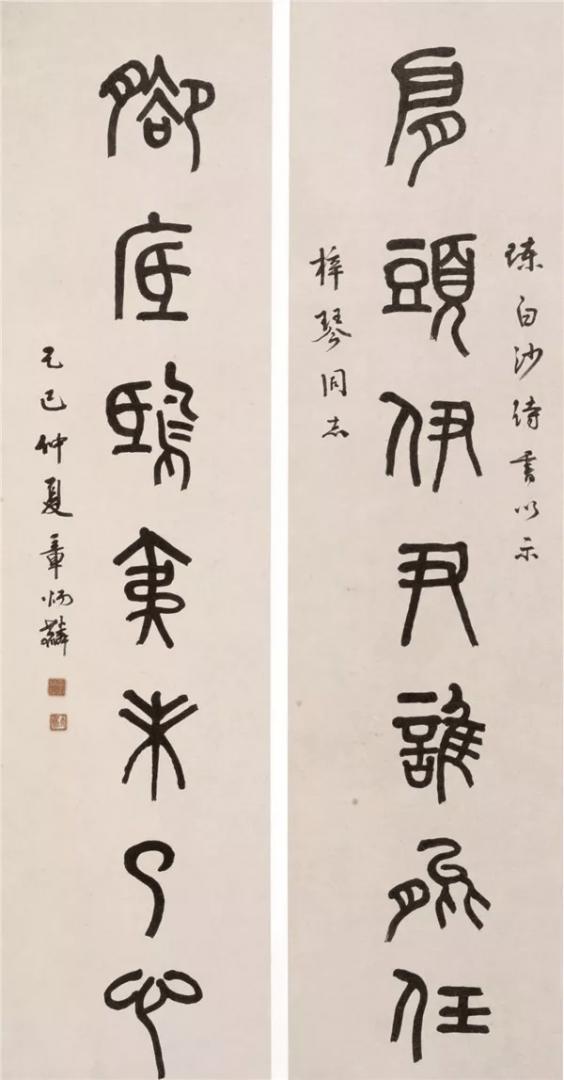 肩頭伊尹誰能任
陳白沙詩書以示
梓琴同志
腳底鴟夷未了心
己巳仲夏章炳麟